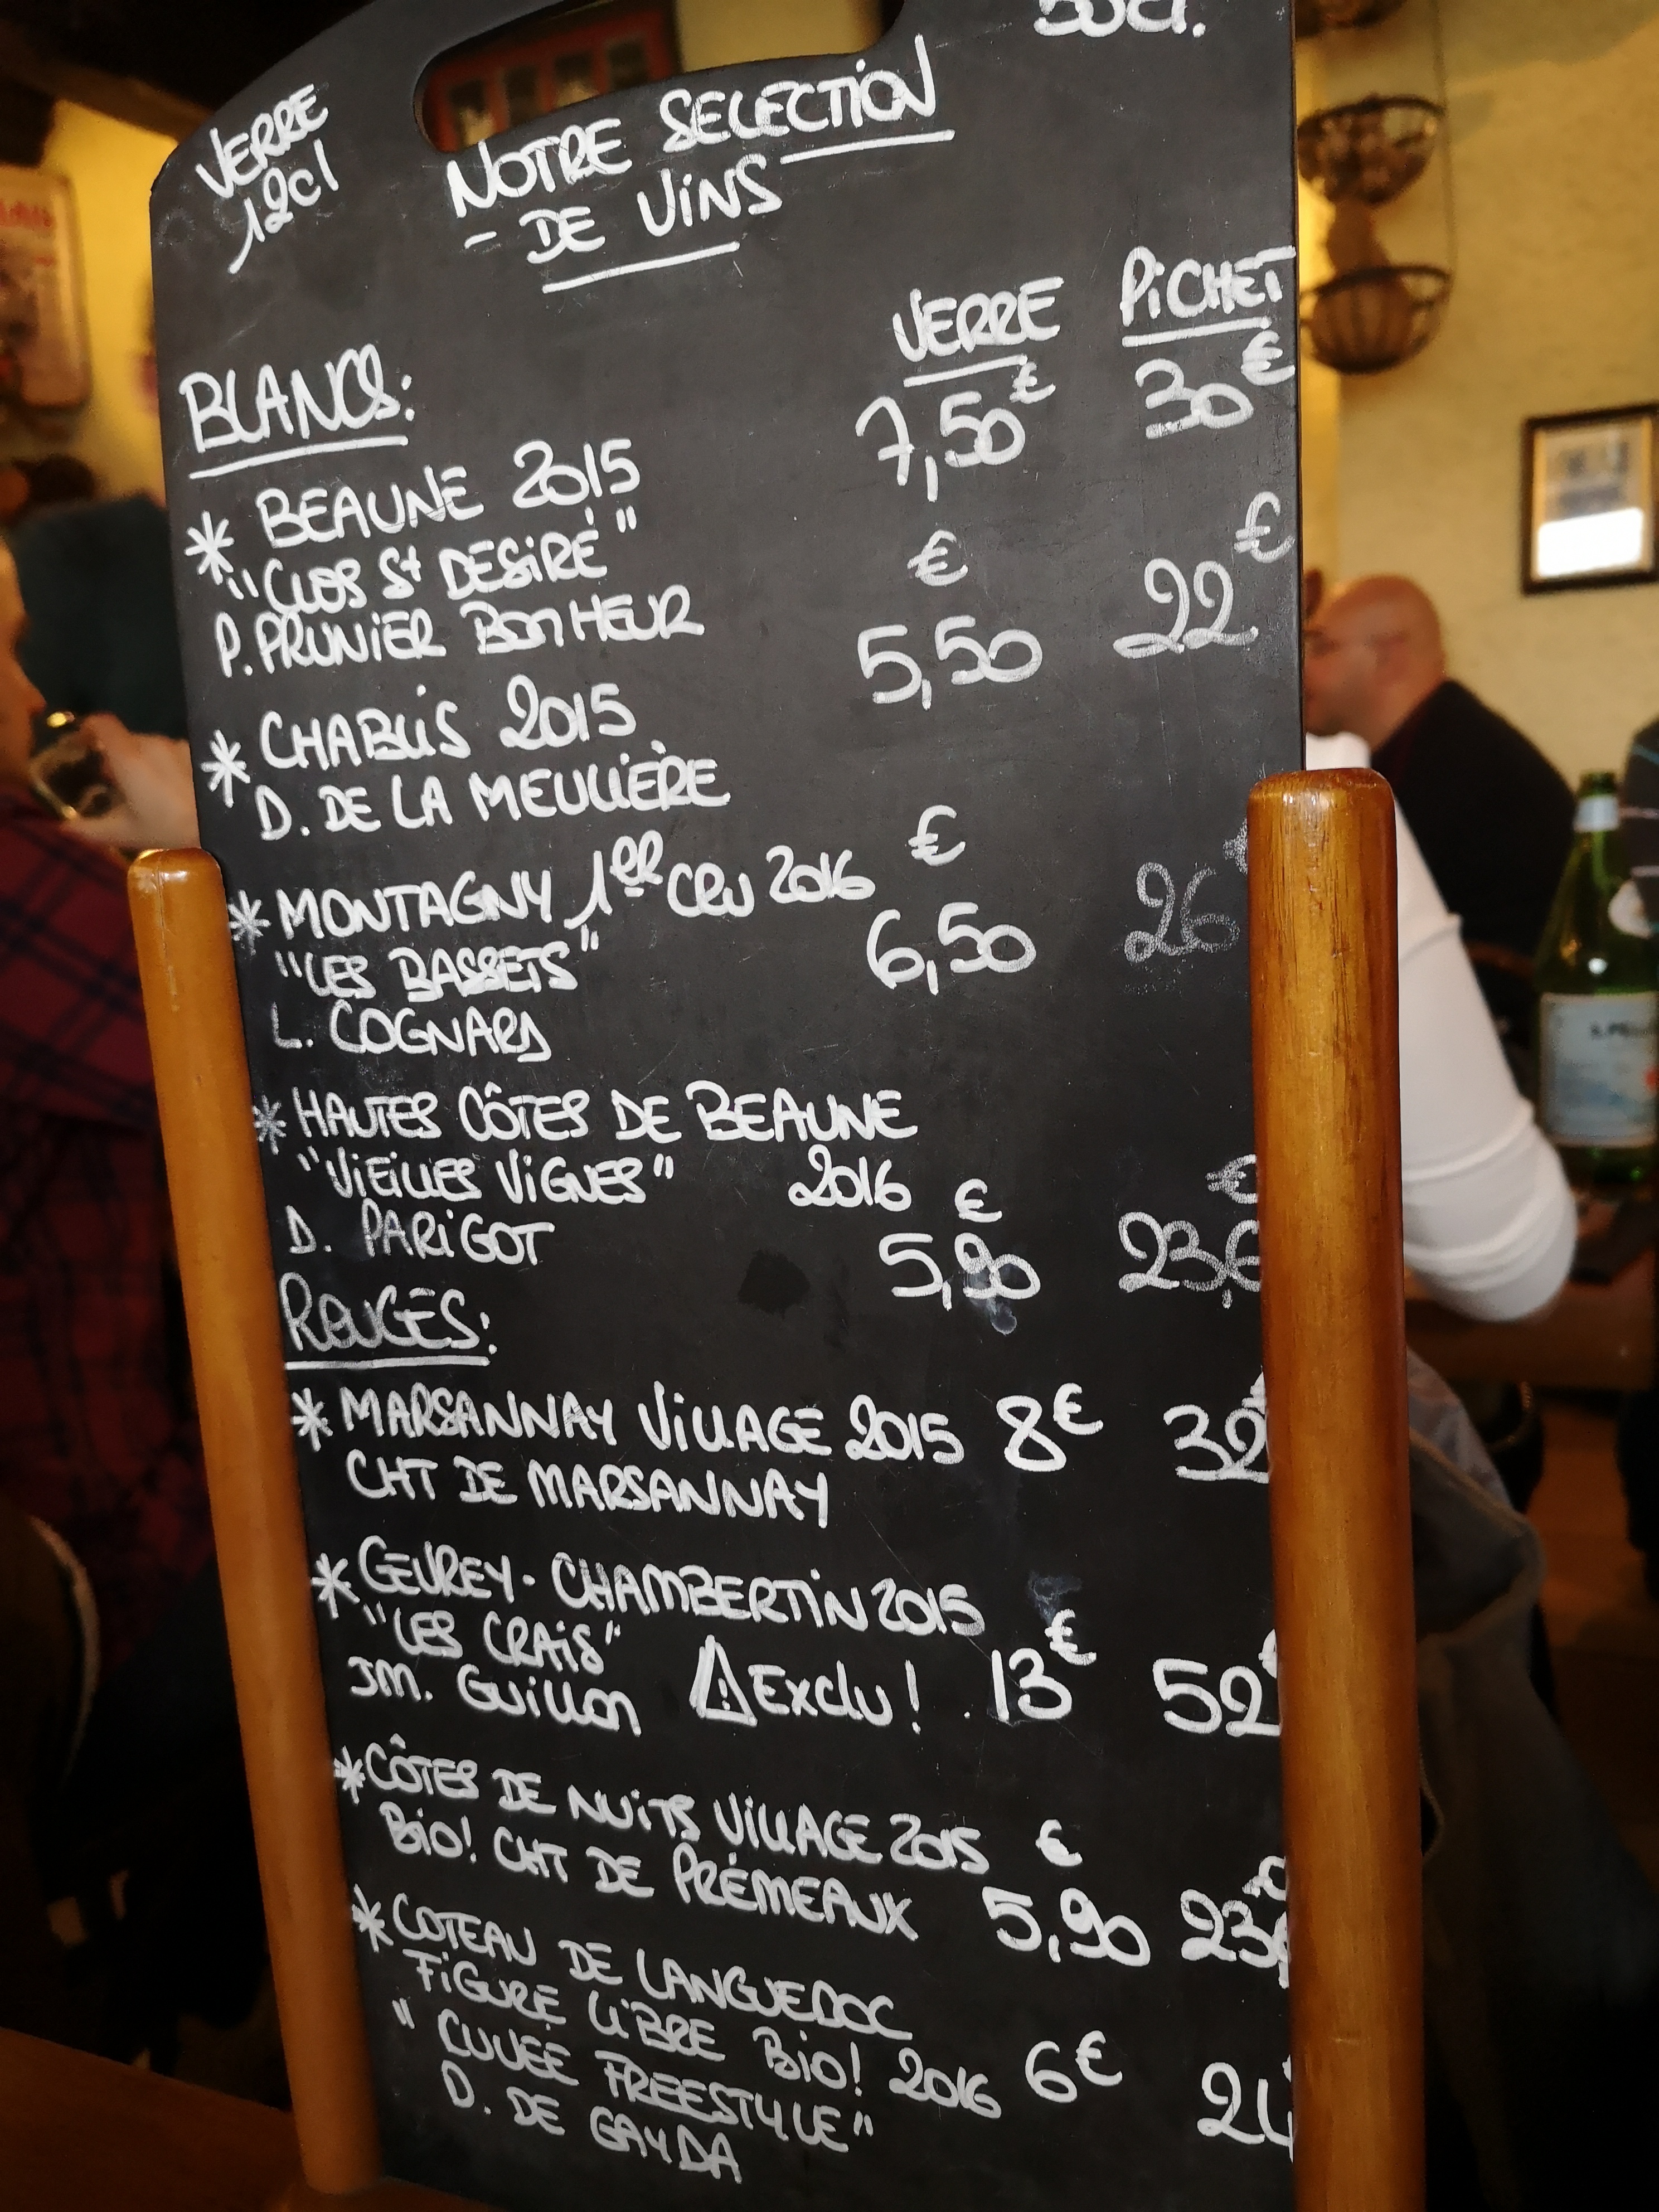 50cl.
VERRE
12cl
NOTRE SELECTION
- DE VINS
VERRE PICHET
BLANCS:
* BEAUNE 2015 7,50€ 30€
"CLOS St DESIRÉ"
P. PRUNIER BONHEUR
* CHABLIS 2015 5,50€ 22€
D. DE LA MEULIÈRE
* MONTAGNY 1ER CRU 2016 6,50€ 26€
"LES BASSETS"
L. COGNARD
* HAUTES CÔTES DE BEAUNE
"VIEILLES VIGNES" 2016
D. PARIGOT 5,90€ 23,6€
ROUGES:
* MARSANNAY VILLAGE 2015 8€ 32
CHT DE MARSANNAY
* GEVREY-CHAMBERTIN 2015
"LES CRAIS"
JM. Guillon ⚠ Exclu! 13€ 52€
* CÔTES DE NUITS VILLAGE 2015
BiO! CHT DE PRÉMEAUX 5,90€ 23,
* COTEAU DE LANGUEDOC
FIGURE LIBRE BiO! 2016 6€ 24
"CUVÉE FREESTYLE"
D. DE GAYDA